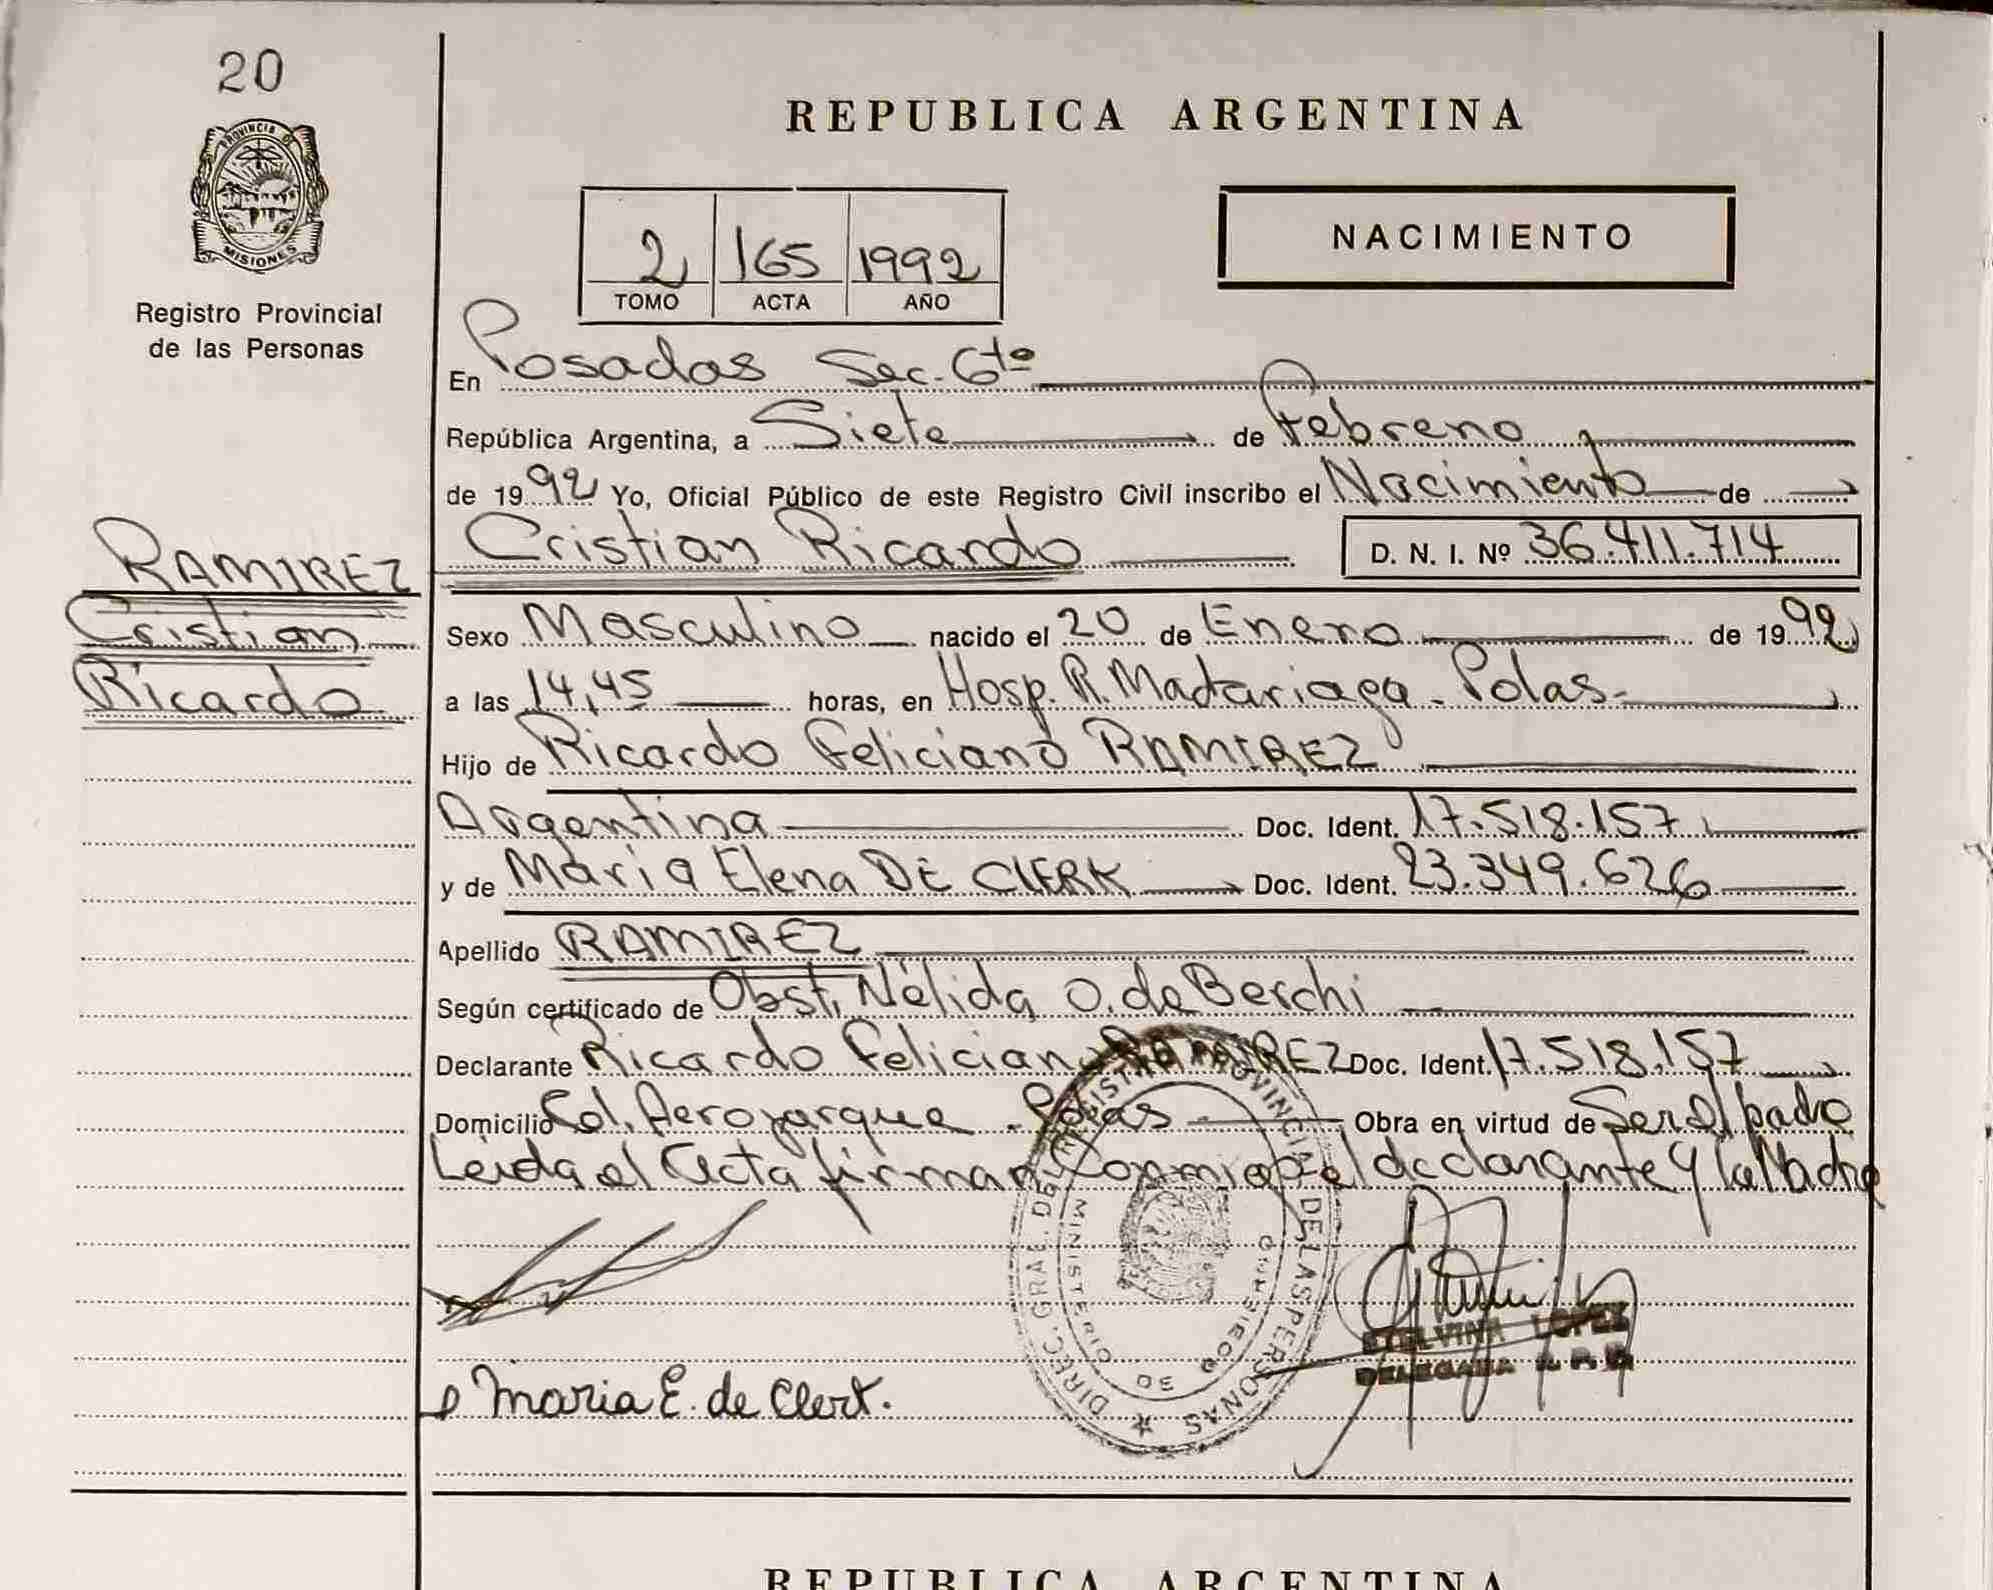 20
PROVINCIA DE
MISIONES
Registro Provincial
de las Personas
RAMIREZ
Cristian
Ricardo
REPUBLICA ARGENTINA
2 165 1992
TOMO ACTA AÑO
NACIMIENTO
En Posadas Sec. 6ta
República Argentina, a Siete de Febrero
de 1992 Yo, Oficial Público de este Registro Civil inscribo el Nacimiento de
Cristian Ricardo D. N. I. Nº 36.411.714
Sexo Masculino nacido el 20 de Enero de 1992
a las 14,45 horas, en Hosp. R. Madariaga - Pdas.
Hijo de Ricardo Feliciano RAMIREZ
Argentina Doc. Ident. 17.518.157
y de Maria Elena DE CLERK Doc. Ident. 23.349.626
Apellido RAMIREZ
Según certificado de Obst. Nélida O. de Berchi
Declarante Ricardo Feliciano RAMIREZ Doc. Ident. 17.518.157
Domicilio Col. Aeroparque - Pdas - Obra en virtud de Ser el padre
Leida el Acta firman Conmigo el declarante y la Madre
DIREC. GRAL. DEL REGISTRO PROVINCIAL DE LAS PERSONAS
MINISTERIO DE GOBIERNO
ETELVINA LOPEZ
DELEGADA R. P. P.
Maria E. de Clerk.
REPUBLICA ARGENTINA